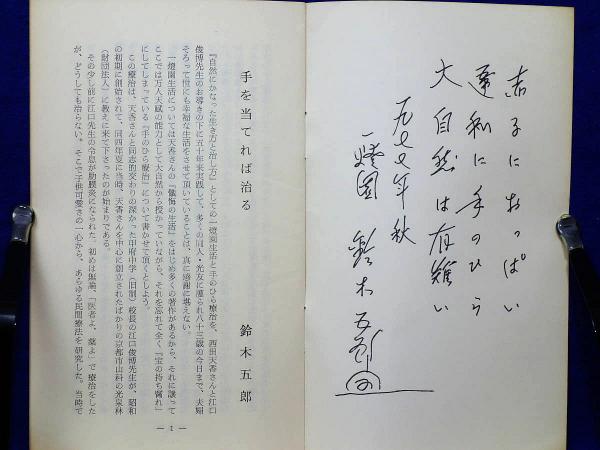 赤子におっぱい
違和に手のひら
大自然は有難い
一九七七年秋
一燈園 鈴木五郎
手を当てれば治る
鈴木五郎
『自然にかなった生き方と治し方』としての一燈園生活と手のひら療治を、西田天香さんと江口
俊博先生のお導きの下に五十年来実践して、多くの同人・光友に護られ八十三歳の今日まで、夫婦
そろって世にも幸福な生活をさせて頂いていることは、真に感謝に堪えない。
一燈園生活については天香さんの『懺悔の生活』をはじめ多くの著作があるから、それに譲って
ここでは万人天賦の能力として大自然から授かっていながら、それを忘れて全く『宝の持ち腐れ』
にしてしまっている『手のひら療治』について書かせて頂くとしよう。
この療治は、天香さんと同志的交わりの深かった甲府中学（旧制）校長の江口俊博先生が、昭和
の初期に創始されて、同四年夏に当時、天香さんを中心に創立されたばかりの京都市山科の光泉林
（財団法人）に教えに来て下さったのが始まりである。
その少し前に江口先生の令息が肋膜炎になられた。初めは無論、「医者よ、薬よ」で療治をした
が、どうしても治らない。そこで子供可愛さの一心から、あらゆる民間療法を研究した。当時で
— 1 —